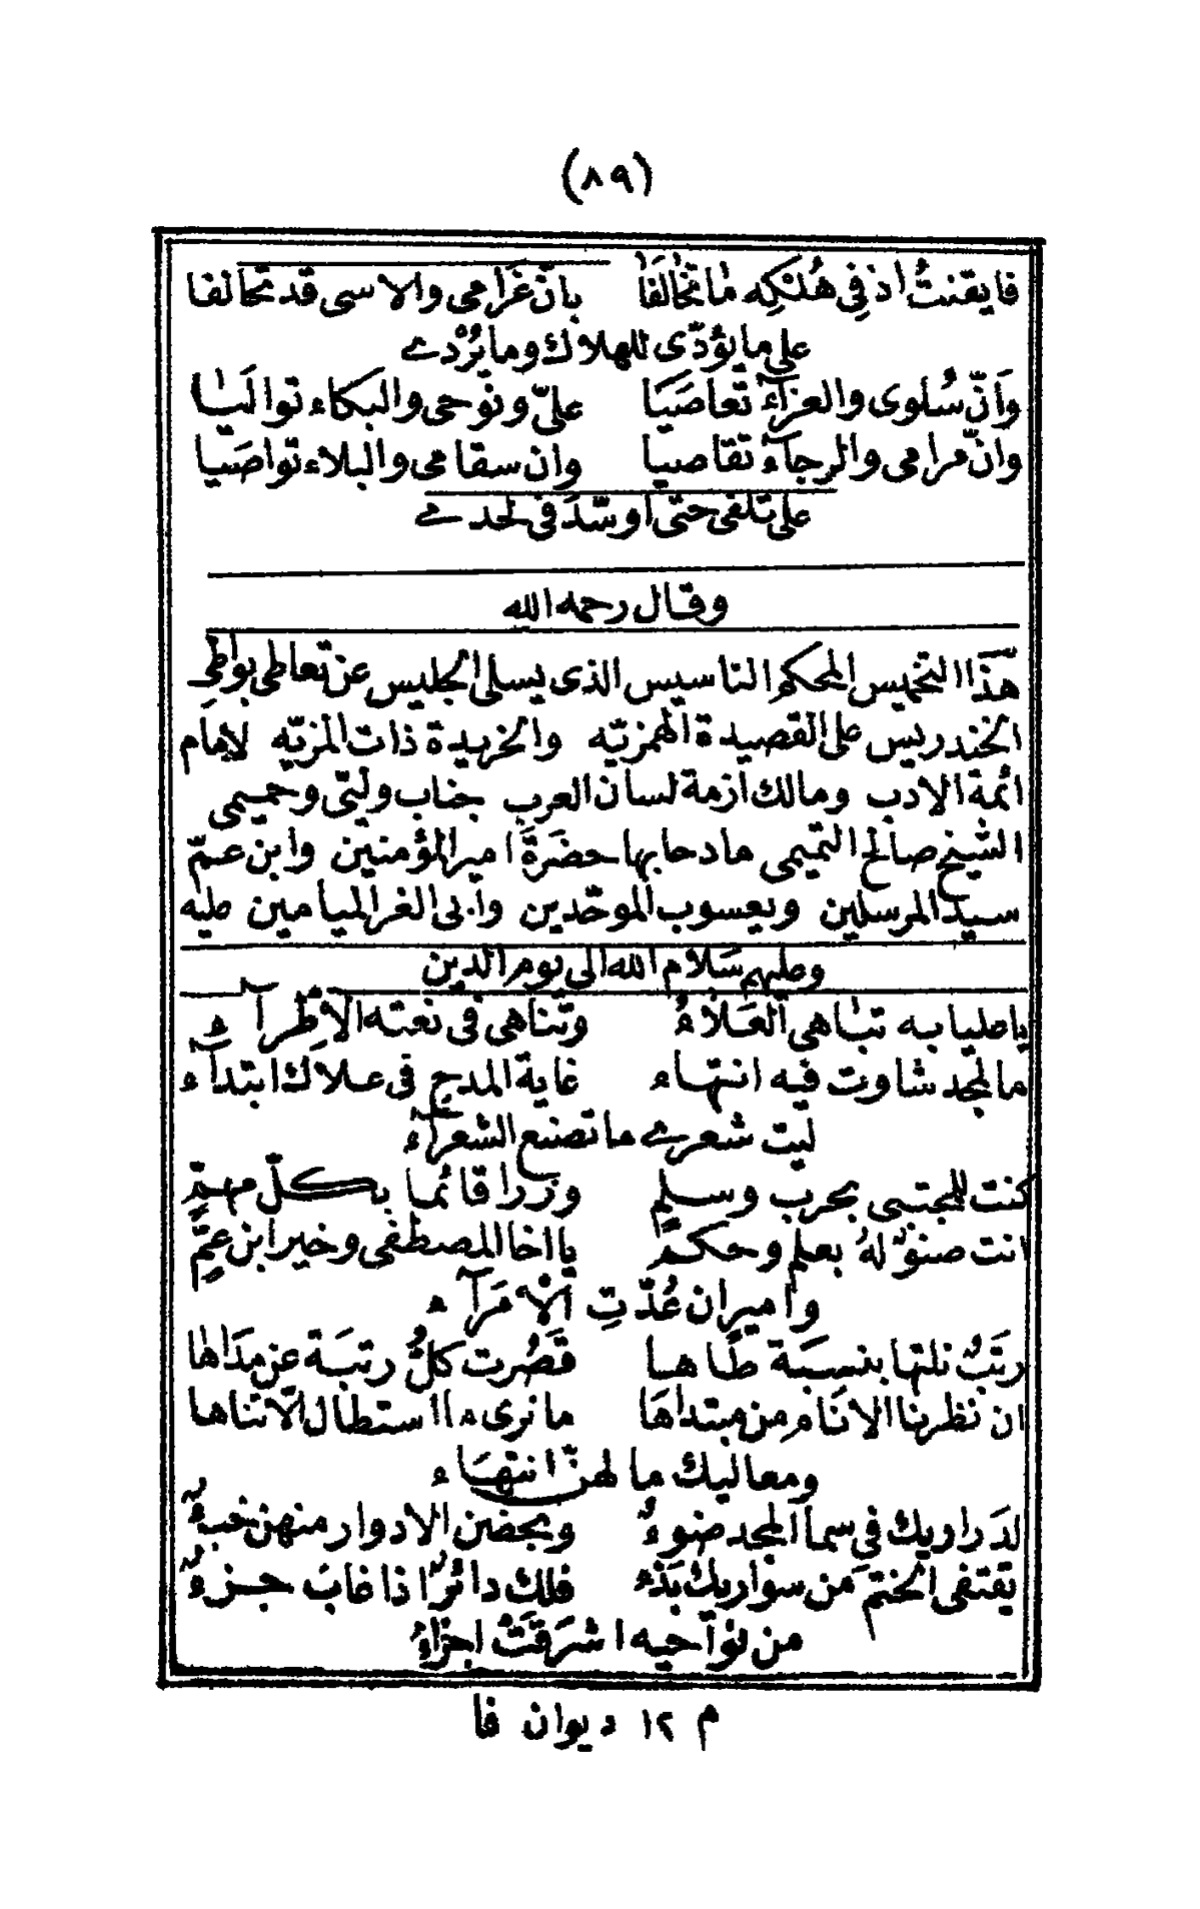 (٨٩)
فايقنتُ اذ في هُلْكِه مٰا تخٰالَفٰا بانّ غَرامى والاسى قد تحالفا
على ما يؤدّى للهلاك وما يُرْدے
وَانّ سُلوى والعزآءَ تَعاصَيَا علىّ ونَوحى والبكاء توالَيٰا
وانّ مرامى والرجآءَ تقاصيا وان سقامى والبلاء تواصَيا
على تلفى حتى اوسّدَ فى لحدے
وقال رحمه الله
هَذا التخميس المحكم التاسيس الذى يسلى الجليس عن تعاطى بواطى
الخندريس على القصيدة الهمزيّه والخريدة ذات المزيّه لامام
ائمة الادب ومالك ازمة لسان العرب جناب وليّى وحميمى
الشيخ صالح التميمى مادحا بها حضَرَة امير المؤمنين وابن عمّ
سيد المرسلين ويعسوب الموحّدين وابى الغر الميامين عليه
وعليهم سَلام الله الى يوم الدين
يا عليا به تبٰاهى العَلاءُ وتناهى فى نعته الاِطْرآء
ما لمجد شاوت فيه انتهاء غاية المدح فى علاك ابتدآء
ليت شعرے ما تصنع الشعرآء
كنت للمجتبى بحرب وسلمٍ وزرا قائما بكلّ مهمٍّ
انت صنوٌ لهُ بعلم وحكمٍ يا اخا المصطفى وخير ابن عمٍّ
وامير ان عُدّتِ الْاُمَرآء
رتَبٌ نلتها بنسبَة طاها قَصُرت كلُّ رتبَة عن مدَاهٰا
ان نظرنا الانَام من مبتداهَا ما نرى ما استطال الّا تناها
ومعاليك ما لهنّ انتهَاء
لدَراريك فى سما المجد ضوءٌ وبحضن الادوار منهن خبءٌ
يقتفى الختمَ من سوَاريك بَدْء فلك دائرٌ اذا غابَ جزءٌ
من نوآحيه اشرَقَتْ اجزَاءُ
م ١٢ ديوان فا